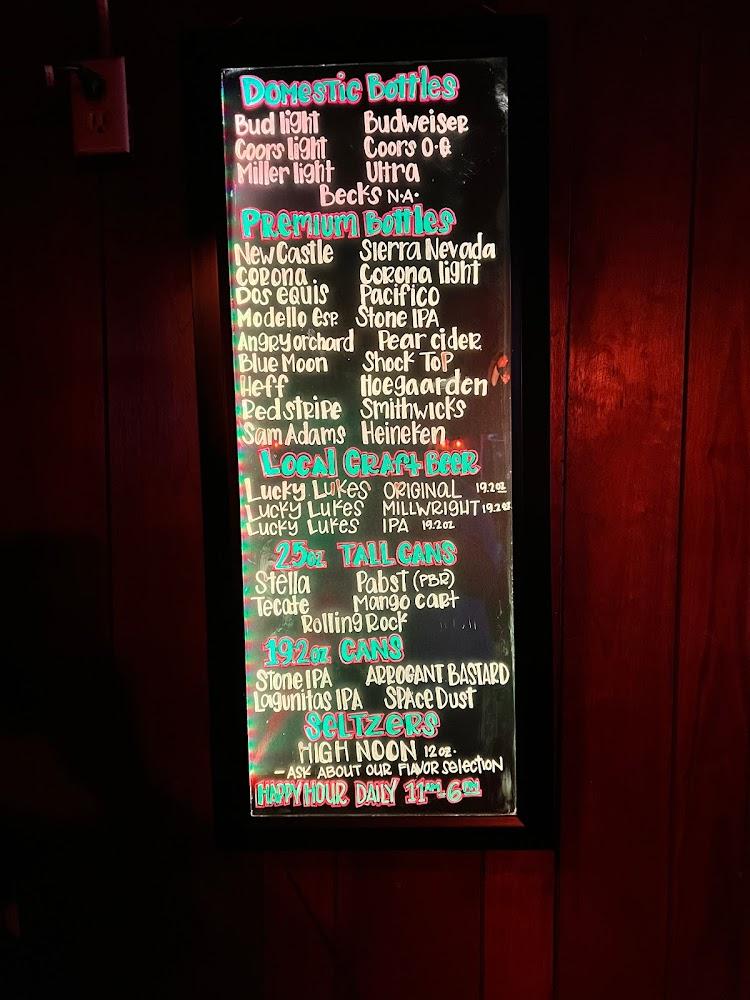 Domestic Bottles
Bud light Budweiser
Coors light Coors O.G
Miller light Ultra
Becks N.A.
Premium Bottles
New Castle Sierra Nevada
Corona Corona light
Dos equis Pacifico
Modello Esp. Stone IPA
Angry orchard Pear cider
Blue Moon Shock Top
Heff Hoegaarden
Red stripe Smithwicks
Sam Adams Heineken
Local Craft Beer
Lucky Lukes ORIGINAL 19.2oz
Lucky Lukes MILLWRIGHT 19.2oz
Lucky Lukes IPA 19.2oz
25oz TALL CANS
Stella Pabst (PBR)
Tecate Mango cart
Rolling Rock
19.2oz CANS
Stone IPA ARROGANT BASTARD
Lagunitas IPA SPAce Dust
Seltzers
HIGH NOON 12oz.
- ASK ABOUT OUR FLAVOR Selection
HAPPY HOUR DAILY 11AM-6PM